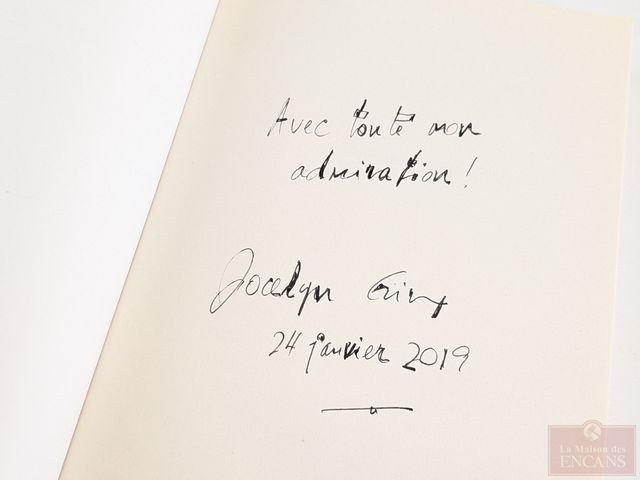 Avec toute mon
admiration !
Jocelyn
24 janvier 2019
La Maison des
ENCANS